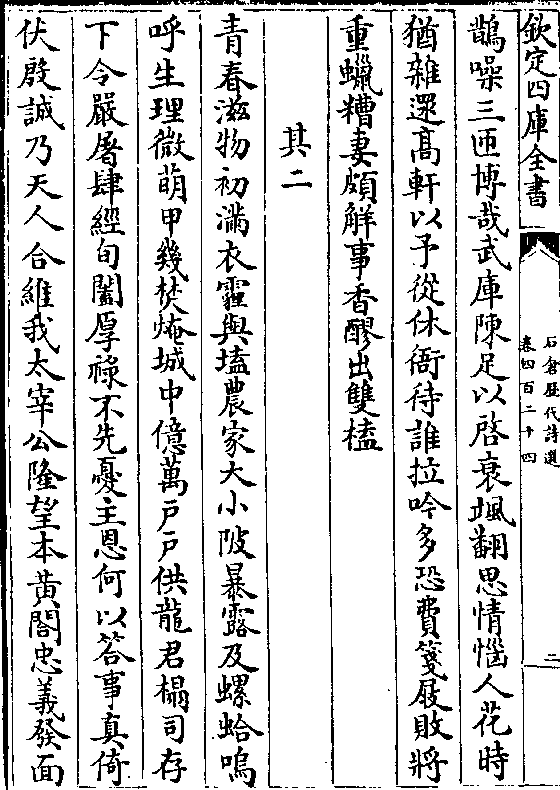 欽定四庫全書
石倉歷代詩選
卷四百二十四
二
鵲噪三匝博哉武庫陳足以啓衰颯翻思情惱人花時
猶雜遝高軒以予從休衙待誰拉吟多恐費箋屐敗將
重蠟糟妻頗觧事香醪出雙榼
其二
青春滋物初滿衣霾與壒農家大小陂暴露及螺蛤嗚
呼生理微萌甲幾焚㷻城中億萬戸戸供龍君榻司存
下令嚴屠肆經旬闔厚祿不先憂主恩何以答事真倚
伏殷誠乃天人合維我太宰公隆望本黃閣忠義發面